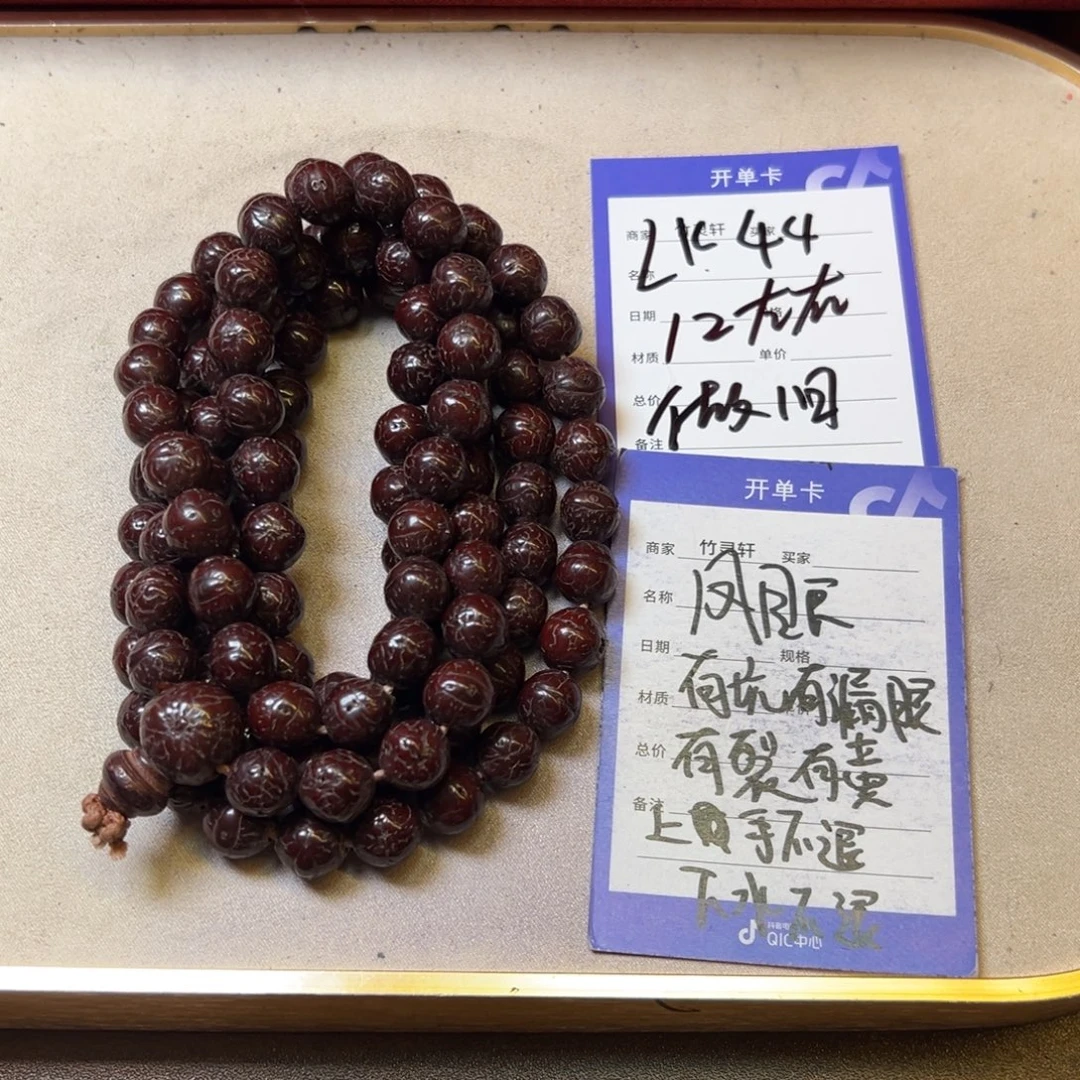 开单卡
商家 竹灵轩 买家
LK 44
名称
日期 格
12左右
材质 单价
总价
做旧
备注
开单卡
商家 竹灵轩 买家
名称 凤眼
日期 规格
材质 有坑有漏眼
总价 有裂有壳
备注 上手不退
下水不退
QIC中心